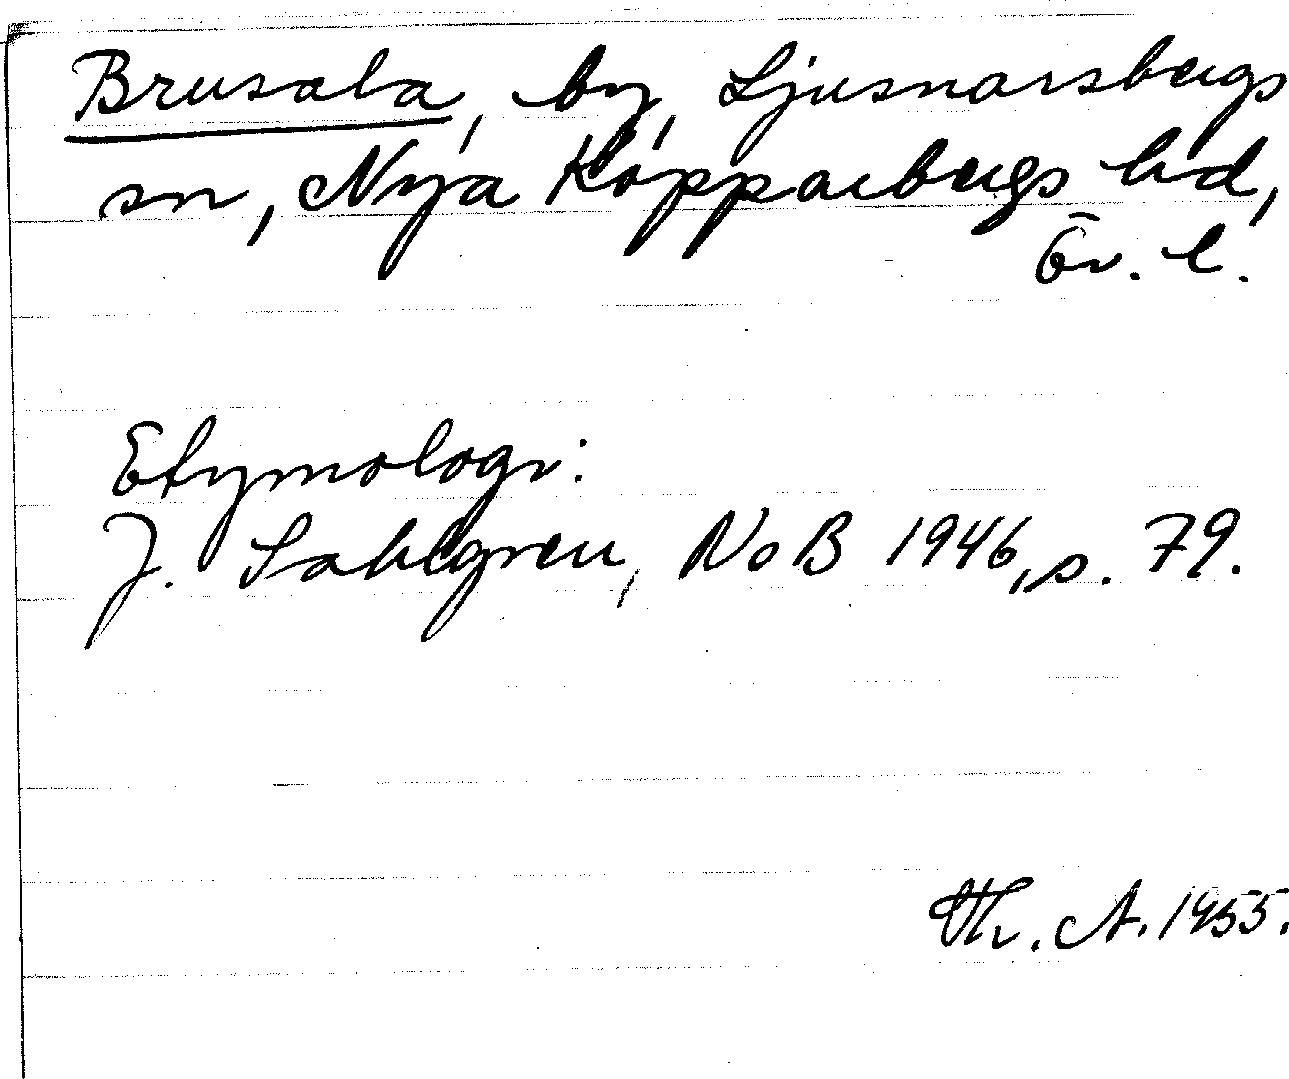 Brusala, by, Ljusnarsbergs
sn, Nya Kopparbergs hd,
Ör. l.
Etymologi:
J. Sahlgren, NoB 1946, s. 79.
Th. A. 1955.